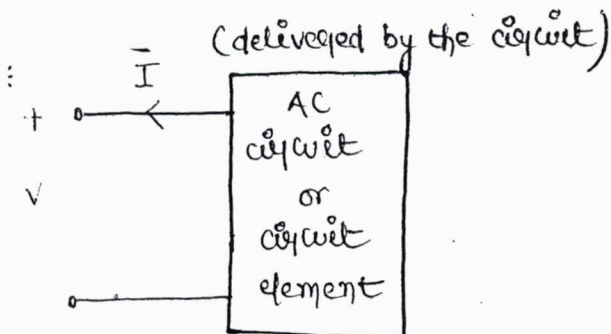 (delivered by the circuit)
Ī
⋮
+
V
AC
circuit
or
circuit
element